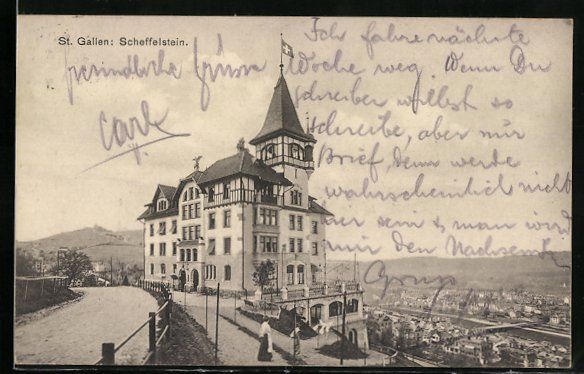 St. Gallen: Scheffelstein.
Ich fahre nächste
Woche weg. Wenn Du
schreiben willst so
schreibe, aber nur
Brief, denn werde
wahrscheinlich nicht
hier sein & man wird
mir den
Gruss
Carl